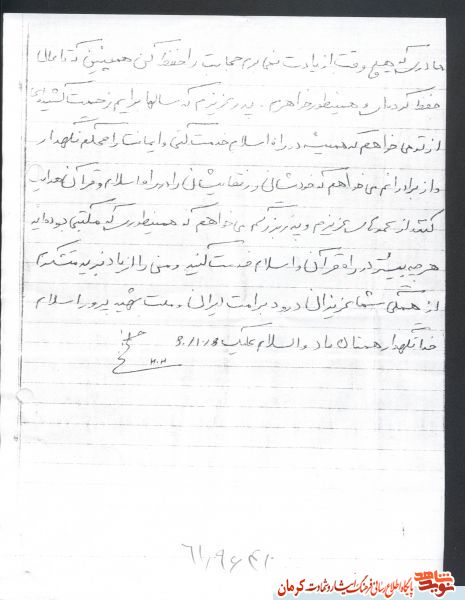 مادرم که هیچ وقت از یادت نمی برم حجابت را حفظ کن همچنین که تا بحال
حفظ کرده‌ای و همینطور خواهرم. پدر عزیزم که سالها برایم زحمت کشیده‌ای
از تو می خواهم که همیشه در راه اسلام خدمت کنی و ایمانت را محکم نگهدار
و از برادرانم می خواهم که خودشان و رفقایشان را در راه اسلام و قرآن هدایت
کنند از عموهای عزیزم و پدر بزرگم می خواهم که همینطوری که مکتبی بوده اید
هر چه بیشتر در راه قرآن و اسلام خدمت کنید و منی را از یاد نبرید متشکرم
از همگی شما عزیزان درود بر امت ایران و ملت شهید پرور اسلام
خدا نگهدار همتان باد والسلام علیک
۶۱٫۹۶۴۲۰
نوید شاهد
پایگاه اطلاع رسانی فرهنگ ایثار و شهادت کرمان